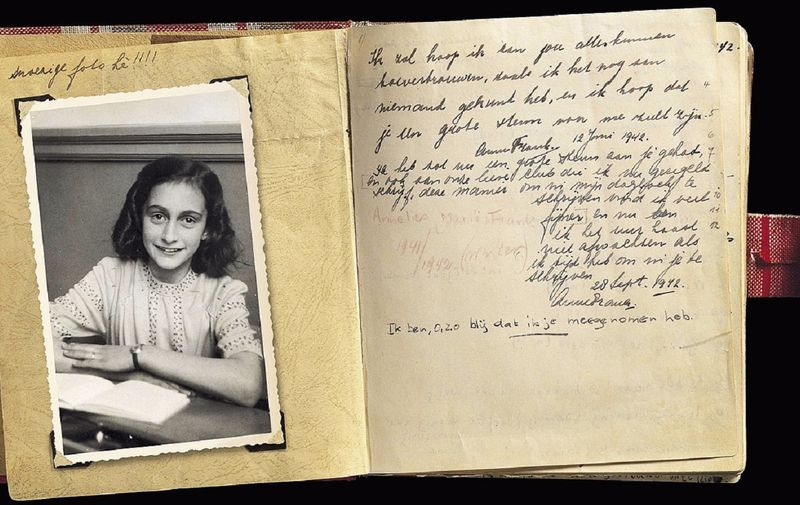 snoezige foto hè!!!!
Ik zal hoop ik aan jou alles kunnen
toevertrouwen, zoals ik het nog aan
niemand gekund heb, en ik hoop dat
je een grote steun voor me zult zijn.
Anne Frank. 12 Juni 1942.
Ik heb tot nu een grote steun aan je gehad,
en ook aan onze lieve club die ik nu geregeld
schrijf, deze manier om in mijn dagboek te
schrijven vind ik veel
fijner, en nu
ik het uur haast
niet afwachten als
ik tijd heb om in je te
schrijven
28 Sept. 1942.
Anne Frank.
Ik ben, o, zo blij dat ik je meegenomen heb.
Annelies Marie Frank
1941/
1942
42.
4
5
6
7
10
11
12